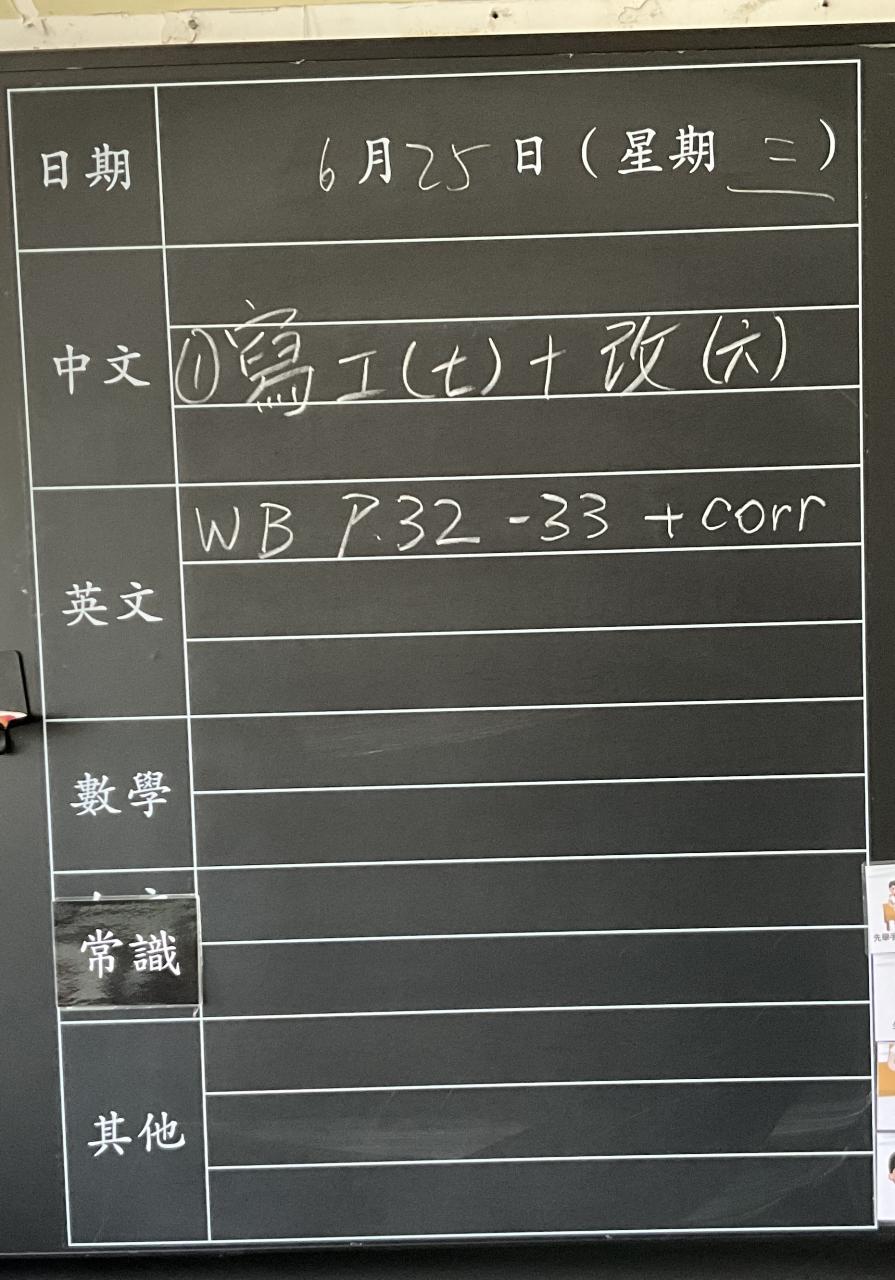 日期 6月25日(星期三)
中文 ①寫工(七)+改(六)
英文 WB P.32-33 +corr
數學
常識
其他
先舉手